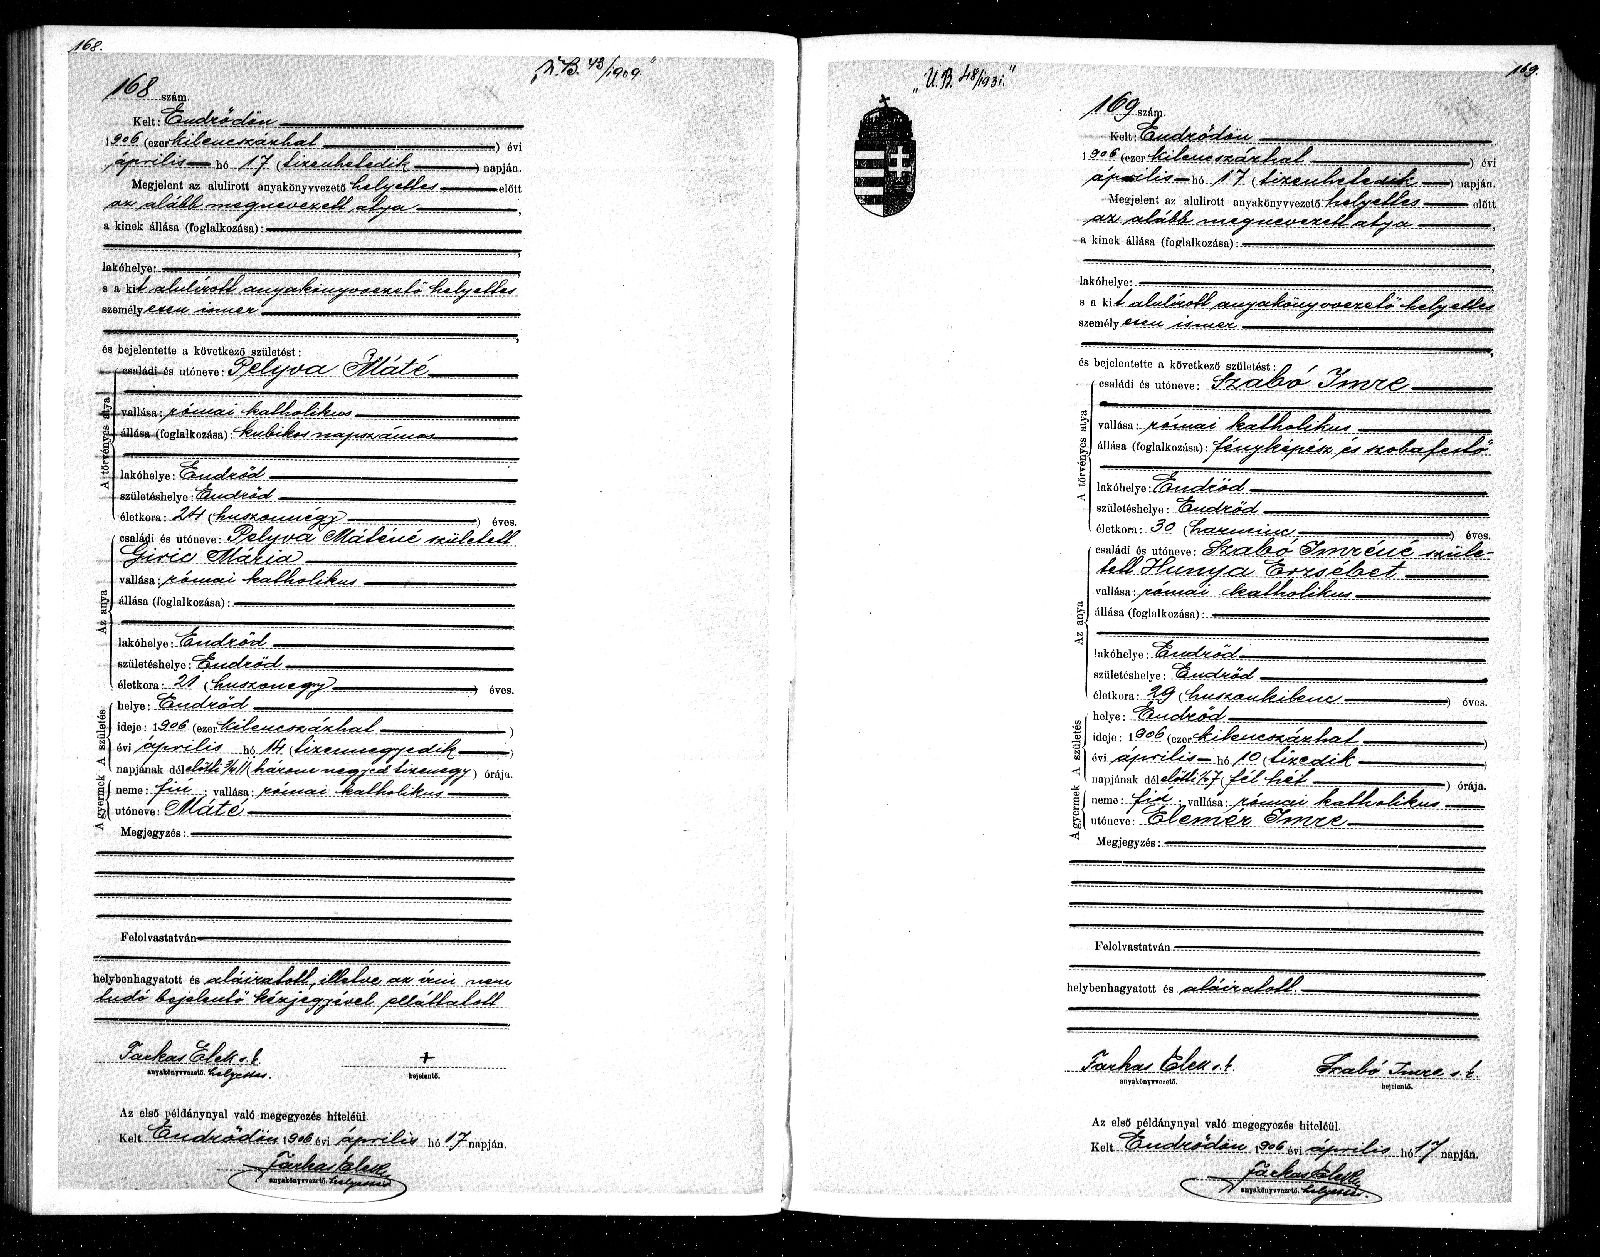 168.
„U.B. 43/1909."
168 szám.
Kelt: Endrődön
1906 (ezer kilencszázhat ) évi
április hó 17 (tizenhetedik ) napján.
Megjelent az alulirott anyakönyvvezető helyettes előtt
az alább megnevezett atya ,
a kinek állása (foglalkozása):
lakóhelye:
s a kit alulírott anyakönyvvezető helyettes
személyesen ismer
és bejelentette a következő születést:
A törvényes atya
családi és utóneve: Pelyva Máté
vallása: római katholikus
állása (foglalkozása): kubikos napszámos
lakóhelye: Endrőd
születéshelye: Endrőd
életkora: 24 (huszonnégy ) éves.
Az anya
családi és utóneve: Pelyva Máténé született
Giric Mária
vallása: római katholikus
állása (foglalkozása):
lakóhelye: Endrőd
születéshelye: Endrőd
életkora: 21 (huszonegy ) éves.
A születés
helye: Endrőd
ideje: 1906 (ezer kilencszázhat )
évi április hó 14 (tizennegyedik )
napjának délelőtti 3/4 11 (három negyed tizenegy ) órája.
A gyermek
neme: fiú ; vallása: római katholikus
utóneve: Máté
Megjegyzés:
Felolvastatván
helybenhagyatott és aláiratott, illetve az írni nem
tudó bejelentő kézjegyével elláttatott
Farkas Elek s.k. +
anyakönyvvezető. helyettes. bejelentő.
Az első példánynyal való megegyezés hiteléül.
Kelt Endrődön 1906 évi április hó 17 napján.
Farkas Elek
anyakönyvvezető. helyettes
169.
„U.B. 48/1931."
169 szám.
Kelt: Endrődön
1906 (ezer kilencszázhat ) évi
április hó 17 (tizenhetedik ) napján.
Megjelent az alulirott anyakönyvvezető helyettes előtt
az alább megnevezett atya ,
a kinek állása (foglalkozása):
lakóhelye:
s a kit alulírott anyakönyvvezető helyettes
személyesen ismer
és bejelentette a következő születést:
A törvényes atya
családi és utóneve: Szabó Imre
vallása: római katholikus
állása (foglalkozása): fényképész és szobafestő
lakóhelye: Endrőd
születéshelye: Endrőd
életkora: 30 (harminc ) éves.
Az anya
családi és utóneve: Szabó Imréné szüle-
tett Hunya Erzsébet
vallása: római katholikus
állása (foglalkozása):
lakóhelye: Endrőd
születéshelye: Endrőd
életkora: 29 (huszonkilenc ) éves.
A születés
helye: Endrőd
ideje: 1906 (ezer kilencszázhat )
évi április hó 10 (tizedik )
napjának délelőtti 1/2 7 (fél hét ) órája.
A gyermek
neme: fiú ; vallása: római katholikus
utóneve: Elemér Imre
Megjegyzés:
Felolvastatván
helybenhagyatott és aláiratott.
Farkas Elek s.k. Szabó Imre s.k.
anyakönyvvezető. bejelentő.
Az első példánynyal való megegyezés hiteléül.
Kelt Endrődön 1906 évi április hó 17 napján.
Farkas Elek
anyakönyvvezető. helyettes.